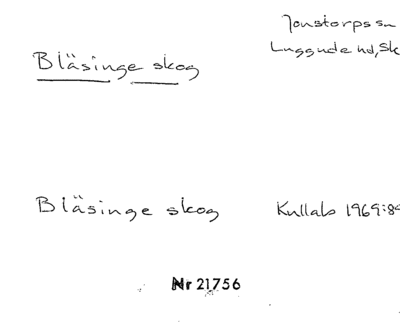 Jonstorps sn
Luggude hd, Sk
Bläsinge skog
Bläsinge skog Kullabo 1969:89
Nr 21756